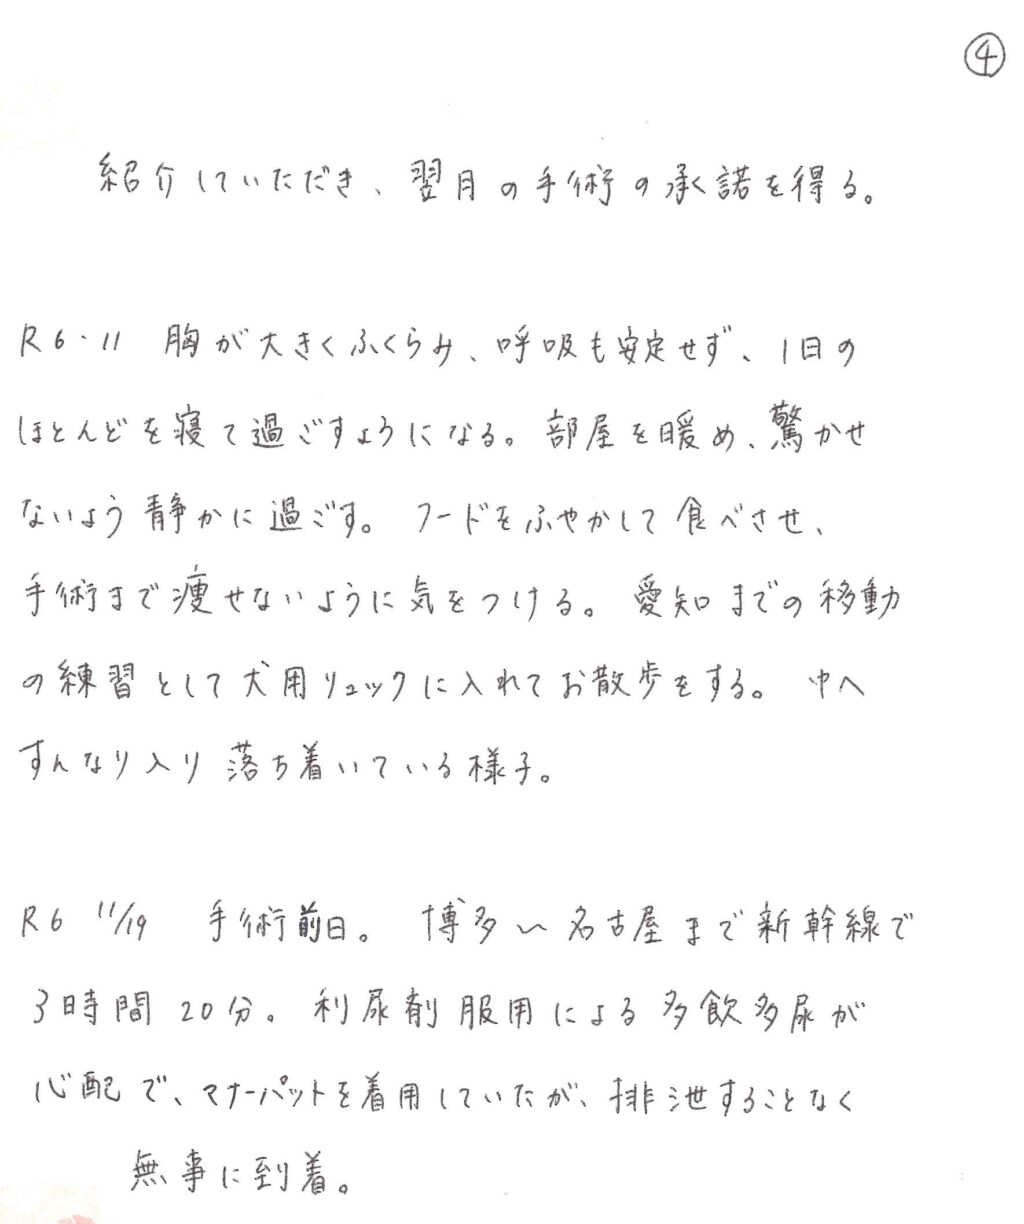 ④
紹介していただき、翌月の手術の承諾を得る。
R6.11 胸が大きくふくらみ、呼吸も安定せず、1日の
ほとんどを寝て過ごすようになる。部屋を暖め、驚かせ
ないよう静かに過ごす。フードをふやかして食べさせ、
手術まで痩せないように気をつける。愛知までの移動
の練習として犬用リュックに入れてお散歩をする。中へ
すんなり入り落ち着いている様子。
R6 11/19 手術前日。博多〜名古屋まで新幹線で
3時間20分。利尿剤服用による多飲多尿が
心配で、マナーパットを着用していたが、排泄することなく
無事に到着。